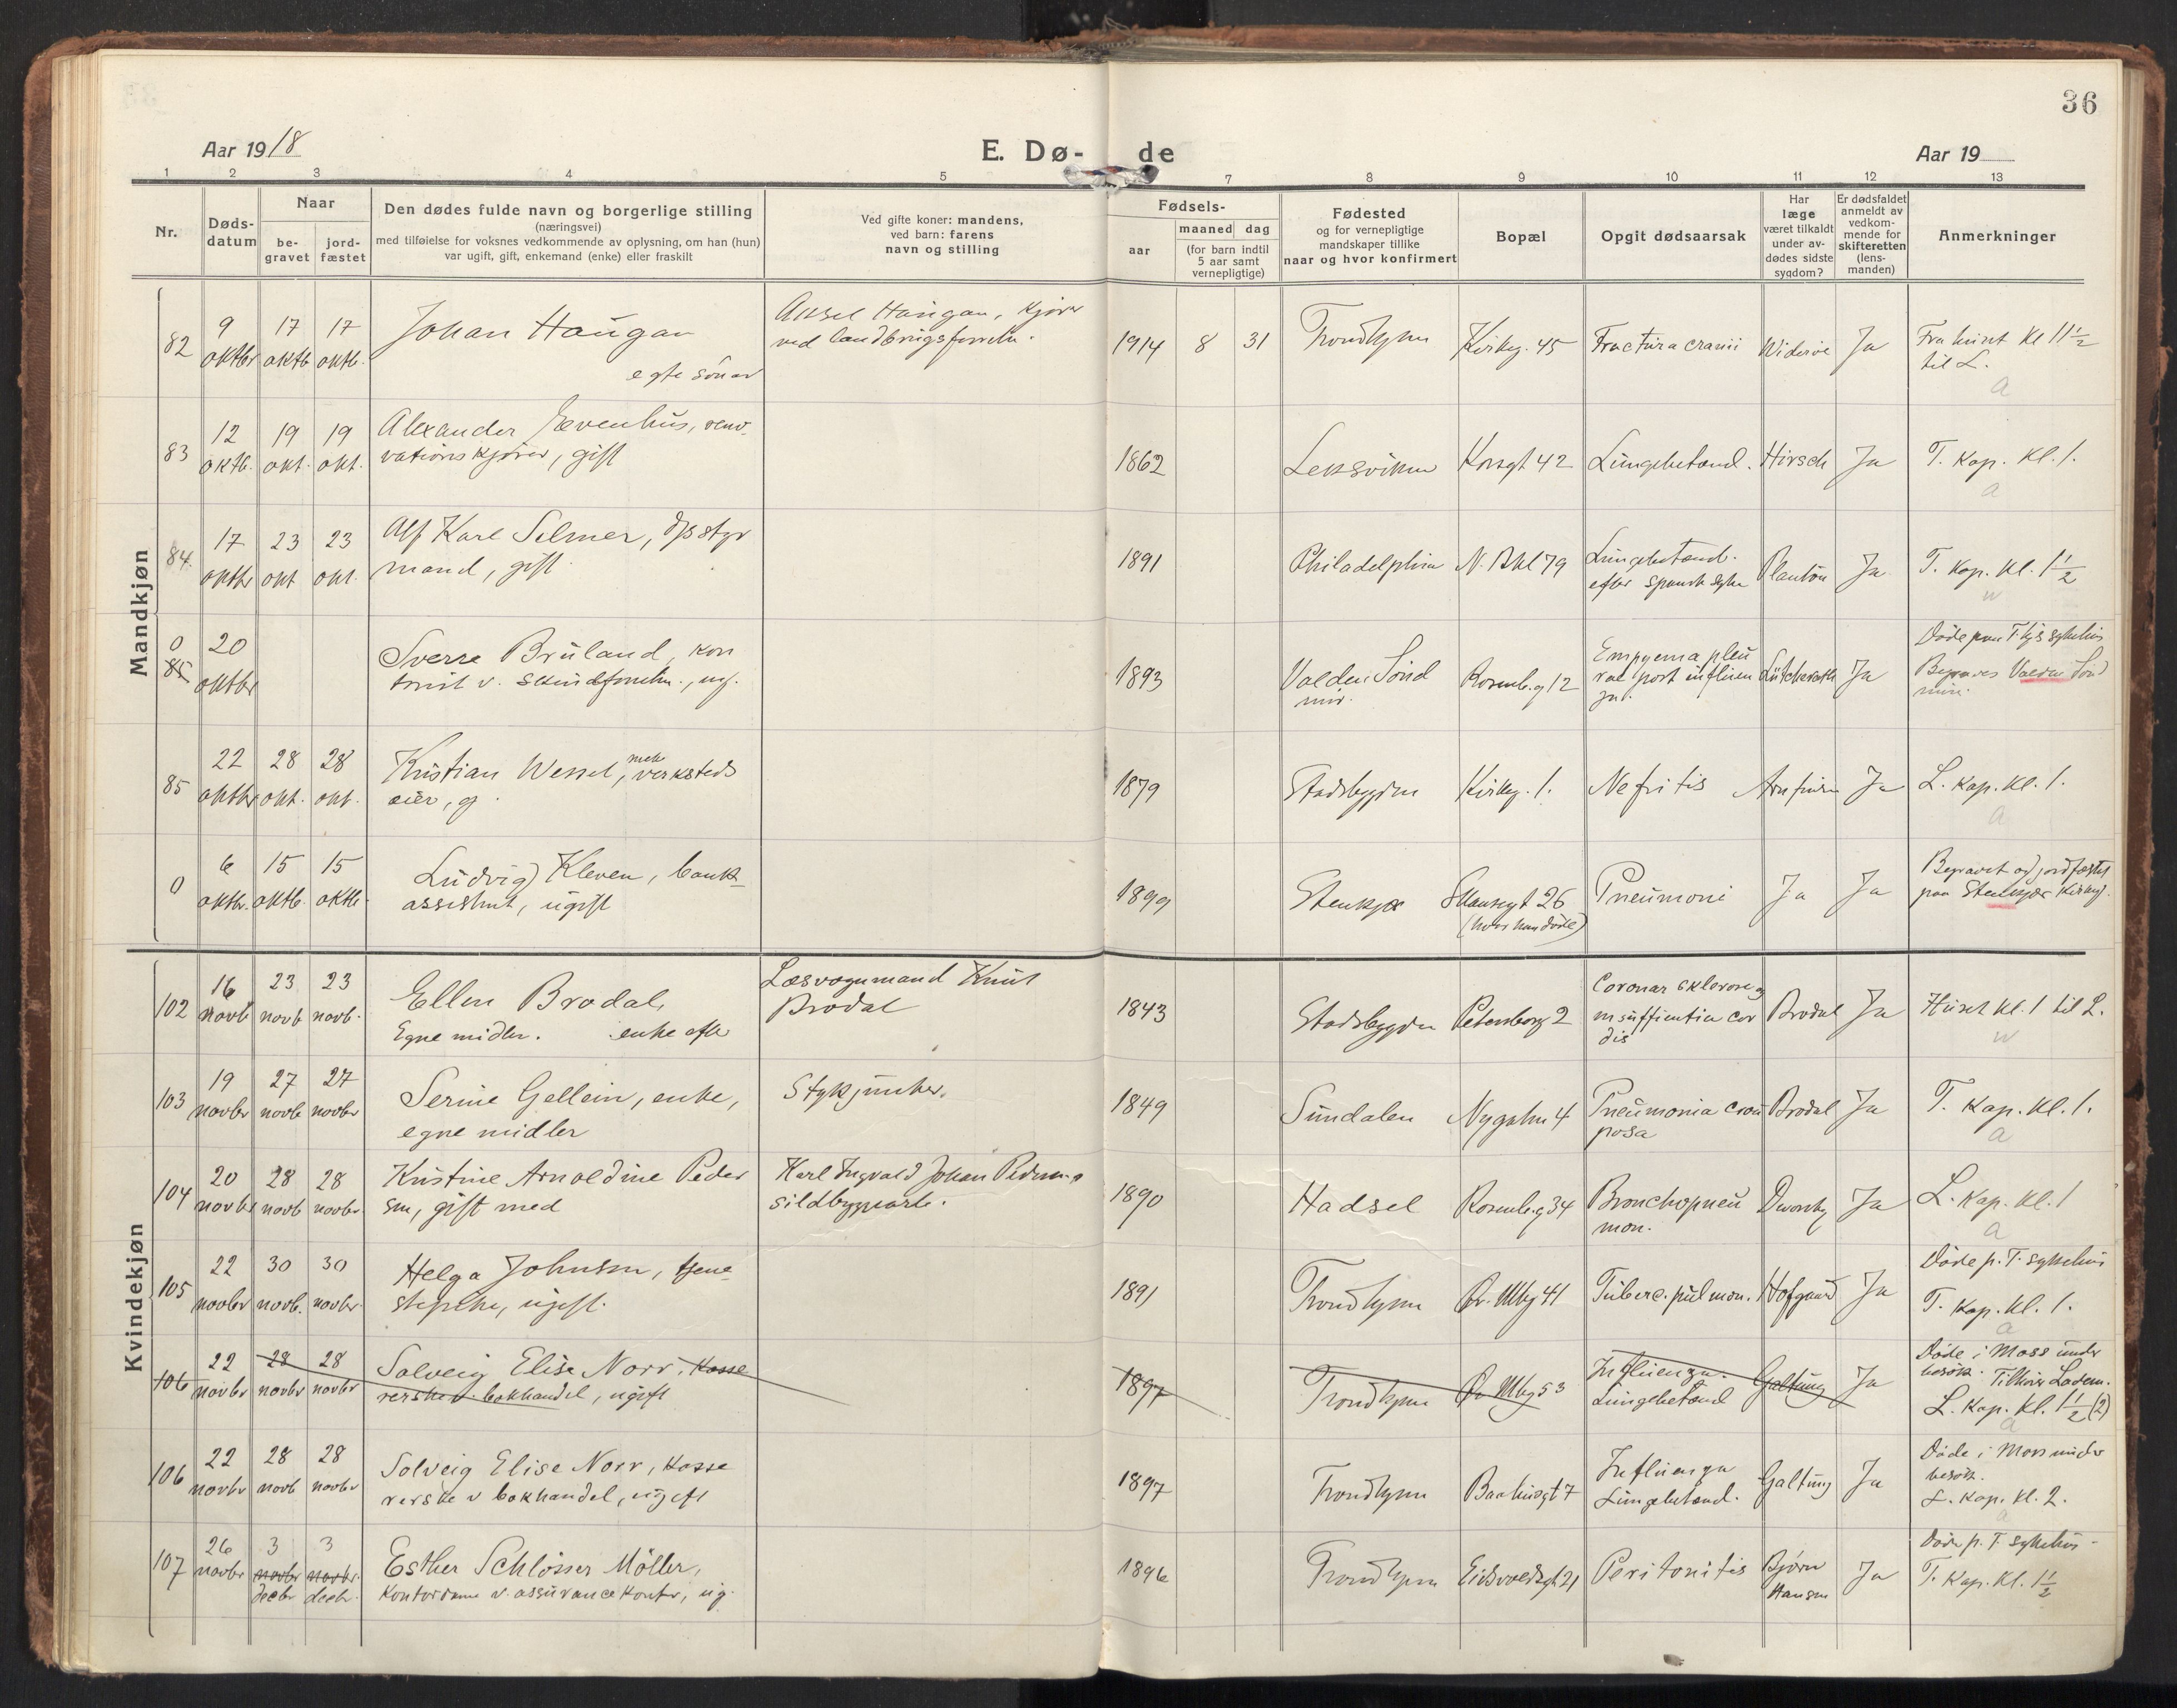 36
Aar 1918
E. Dø-
de
Aar 19
1 2 3 4 5 7 8 9 10 11 12 13
Nr.
Døds-
datum
Naar
be-
gravet
jord-
fæstet
Den dødes fulde navn og borgerlige stilling
(næringsvei)
med tilføielse for voksnes vedkommende av oplysning, om han (hun)
var ugift, gift, enkemand (enke) eller fraskilt
Ved gifte koner: mandens,
ved barn: farens
navn og stilling
Fødsels-
aar
maaned dag
(for barn indtil
5 aar samt
vernepligtige)
Fødested
og for vernepligtige
mandskaper tillike
naar og hvor konfirmert
Bopæl
Opgit dødsaarsak
Har
læge
været tilkaldt
under av-
dødes sidste
sygdom?
Er dødsfaldet
anmeldt av
vedkom-
mende for
skifteretten
(lens-
manden)
Anmerkninger
Mandkjøn
82
9
oktbr
17
oktb
17
oktb.
Johan Haugan
egte søn av
Aksel Haugan, kjører
ved
1914
8
31
Trondhjem
Kirkeg. 45
Fractura cranii
Widerøe
Ja
Fra huset Kl 11½
til L.
a
83
12
oktb.
19
okt.
19
okt.
Alexander Evenhus, reno-
vationskjører, gift
1862
Leksviken
Korsgt 42
Lungebetænd.
Hirsch
Ja
T. Kap. Kl. 1.
a
84.
17
oktbr
23
okt
23
okt.
Alf Karl Selmer, d/s styr
mand, gift.
1891
Philadelphia
N. Bkl 79
Lungebetænd.
efter spansk syke
Ja
T. Kap. Kl. 1½
w
0
85
20
oktbr
Sverre Bruland, kon
torist v. , ug.
1893
Volden Sønd
mør.
Rosenb.g 12
Empyema pleu
rae post influen
za.
Lütcherath
Ja
Døde paa T.hjs sykehus
Begraves Volden Sønd
mør.
85
22
oktbr
28
okt.
28
okt.
Kristian Wessel, mek
verksteds
eier, g.
1879
Stadsbygden
Kirkeg. 1.
Nefritis
Arnfinsen
Ja
L. Kap. Kl. 1.
a
0
6
oktbr.
15
oktb.
15
oktb.
Ludvig Kleven, bank-
assistent, ugift
1899
Stenkjær
Skansegt 26
(hvor han døde)
Pneumoni
Ja
Ja
Begravet og jordfæstet
paa Stenkjær Kirkeg.
Kvindekjøn
102
16
novb
23
novb
23
novb.
Ellen Brodal,
Egne midler. enke efter
Læsvognmand Knut
Brodal
1843
Stadsbygden
Petersborg 2
Coronar sklerose og
insuffientia cor
dis
Brodal
Ja
Huset Kl. 1 til L.
w
103
19
novbr
27
novb
27
novbr
Serine Gellein, enke,
egne midler
Stykjunker.
1849
Sundalen
Nygaten 4
Pneumonia crou
posa
Brodal
Ja
T. Kap. Kl. 1.
a
104
20
novbr
28
novb
28
novbr
Kristine Arnoldine Peder
sen, gift med
Karl Ingvald Johan Pedersen
1890
Hadsel
Rosenb.g 34
Bronchopneu
mon.
Ja
L. Kap. Kl. 1
a
105
22
novbr
30
novb.
30
novbr.
Helga Johnsen, tjene-
stepike, ugift.
1891
Trondhjem
Øv. Mbg 41
Tuberc. pulmon.
Hofgaard
Ja
Døde p. T. sykehus
T. Kap. Kl. 1.
a
106
22
novbr
28
novbr
28
novbr
Solveig Elise Norr, Kasse
rerske v bokhandel, ugift
1897
Trondhjem
Øv Mbg 53
Influenza.
Lungebetænd
Galtung
Ja
Døde i Moss under
besøk. Tilhører Ladem.
L. Kap. Kl. 1½ (2)
a
106
22
novbr
28
novb
28
novbr
Solveig Elise Norr, Kasse
rerske v bokhandel, ugift
1897
Trondhjem
Baahusgt 7
Influenza
Lungebetænd.
Galtung
Ja
Døde i Moss under
besøk.
L. Kap. Kl. 2.
a
107
26
novbr
3
novbr
decbr
3
novbr.
decbr.
Esther Schlösser Möller,
Kontordame v. assurancekontor, ug.
1896
Trondhjem
Eidsvoldsgt 21
Peritonitis
Bjørn
Hansen
Ja
Døde p. T. sykehus-
T. Kap. Kl. 1½